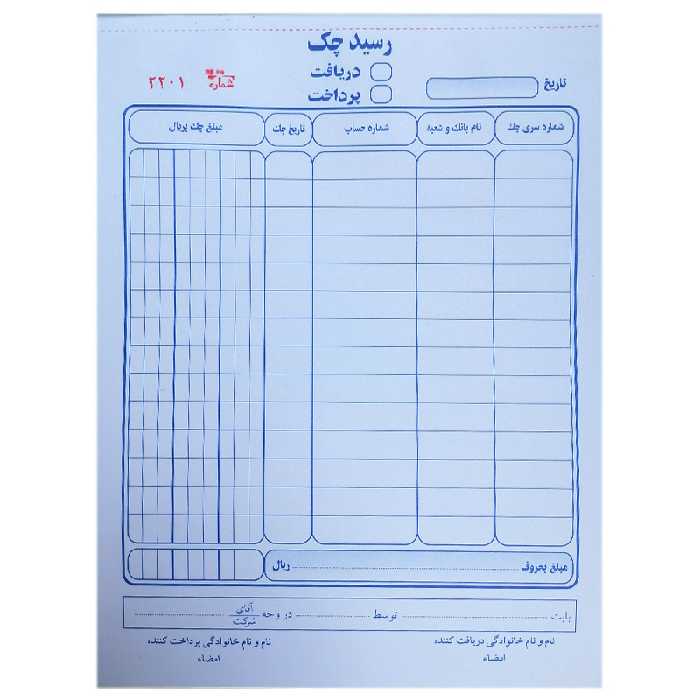 رسید چک
دریافت
پرداخت
تاریخ
شماره ۲۲۰۱
شماره سری چك نام بانك و شعبه شماره حساب تاریخ چك مبلغ چك بریال
مبلغ بحروف ریال
بابت توسط در وجه آقای شرکت
نام و نام خانوادگی دریافت کننده نام و نام خانوادگی پرداخت کننده
امضاء امضاء